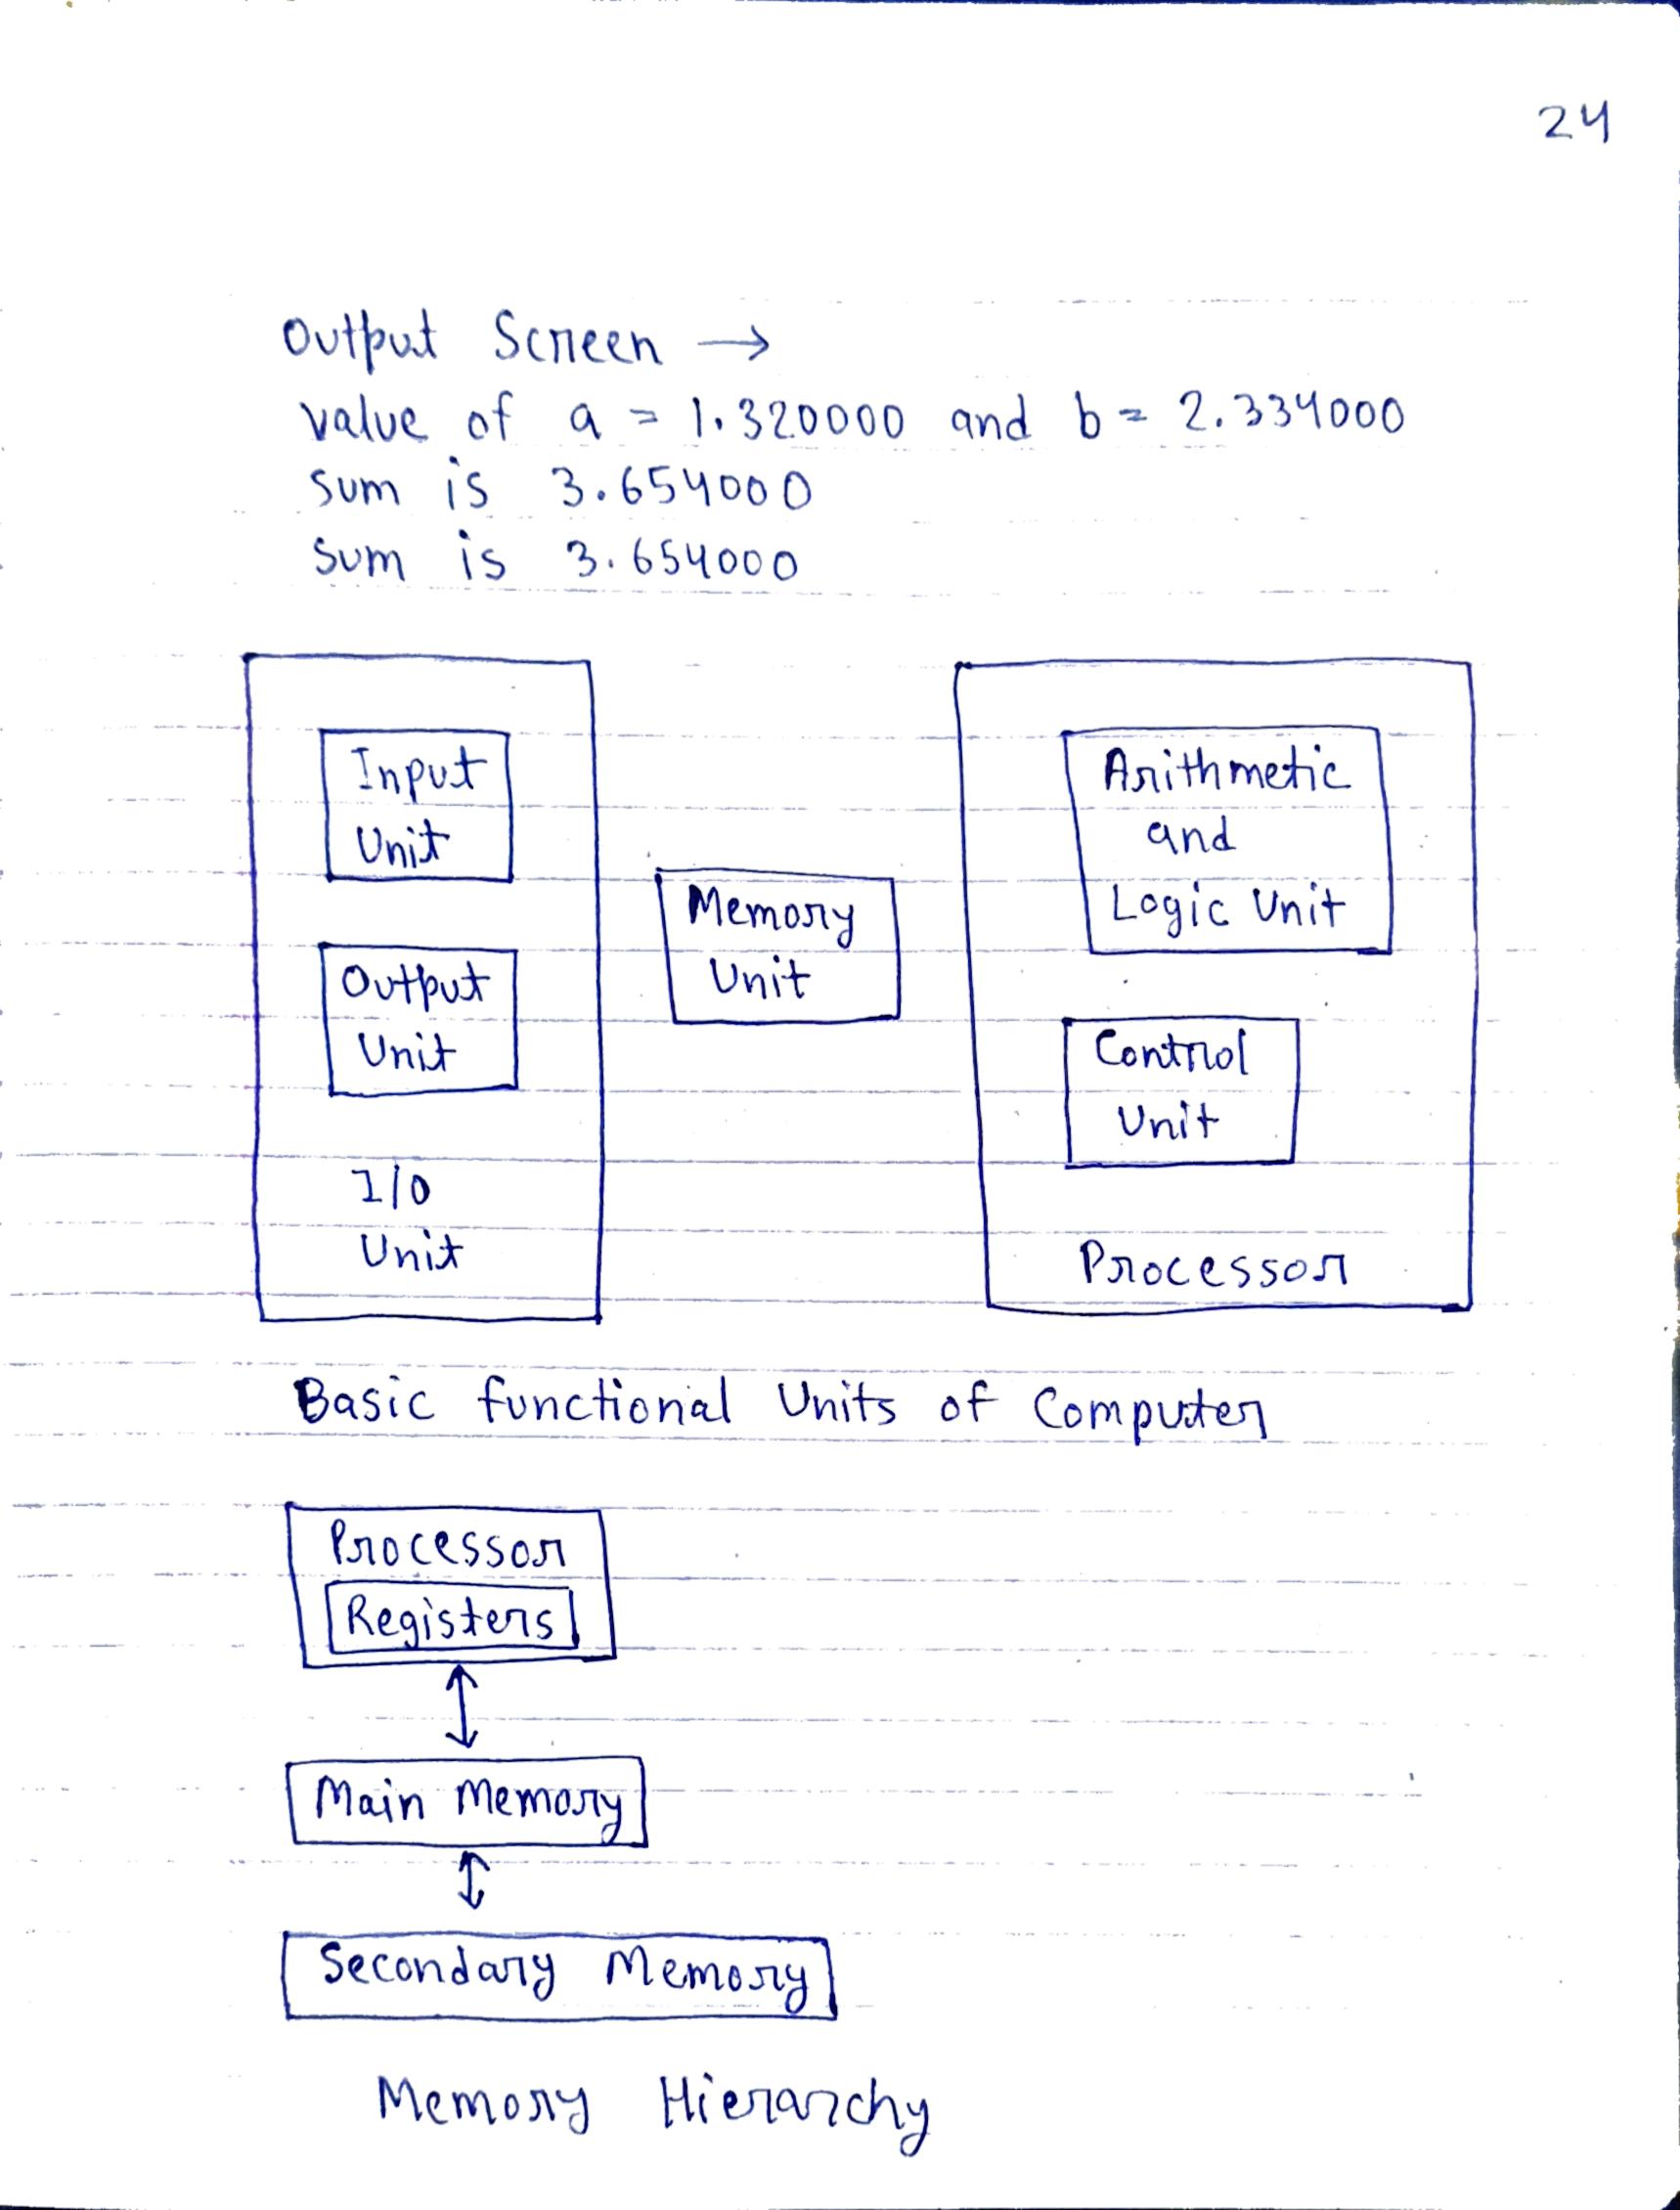 24
Output Screen →
value of a = 1.320000 and b = 2.334000
sum is 3.654000
sum is 3.654000
Input
Unit
Output
Unit
I/O
Unit
Memory
Unit
Arithmetic
and
Logic Unit
Control
Unit
Processor
Basic functional Units of Computer
Processor
Registers
Main Memory
Secondary Memory
Memory Hierarchy